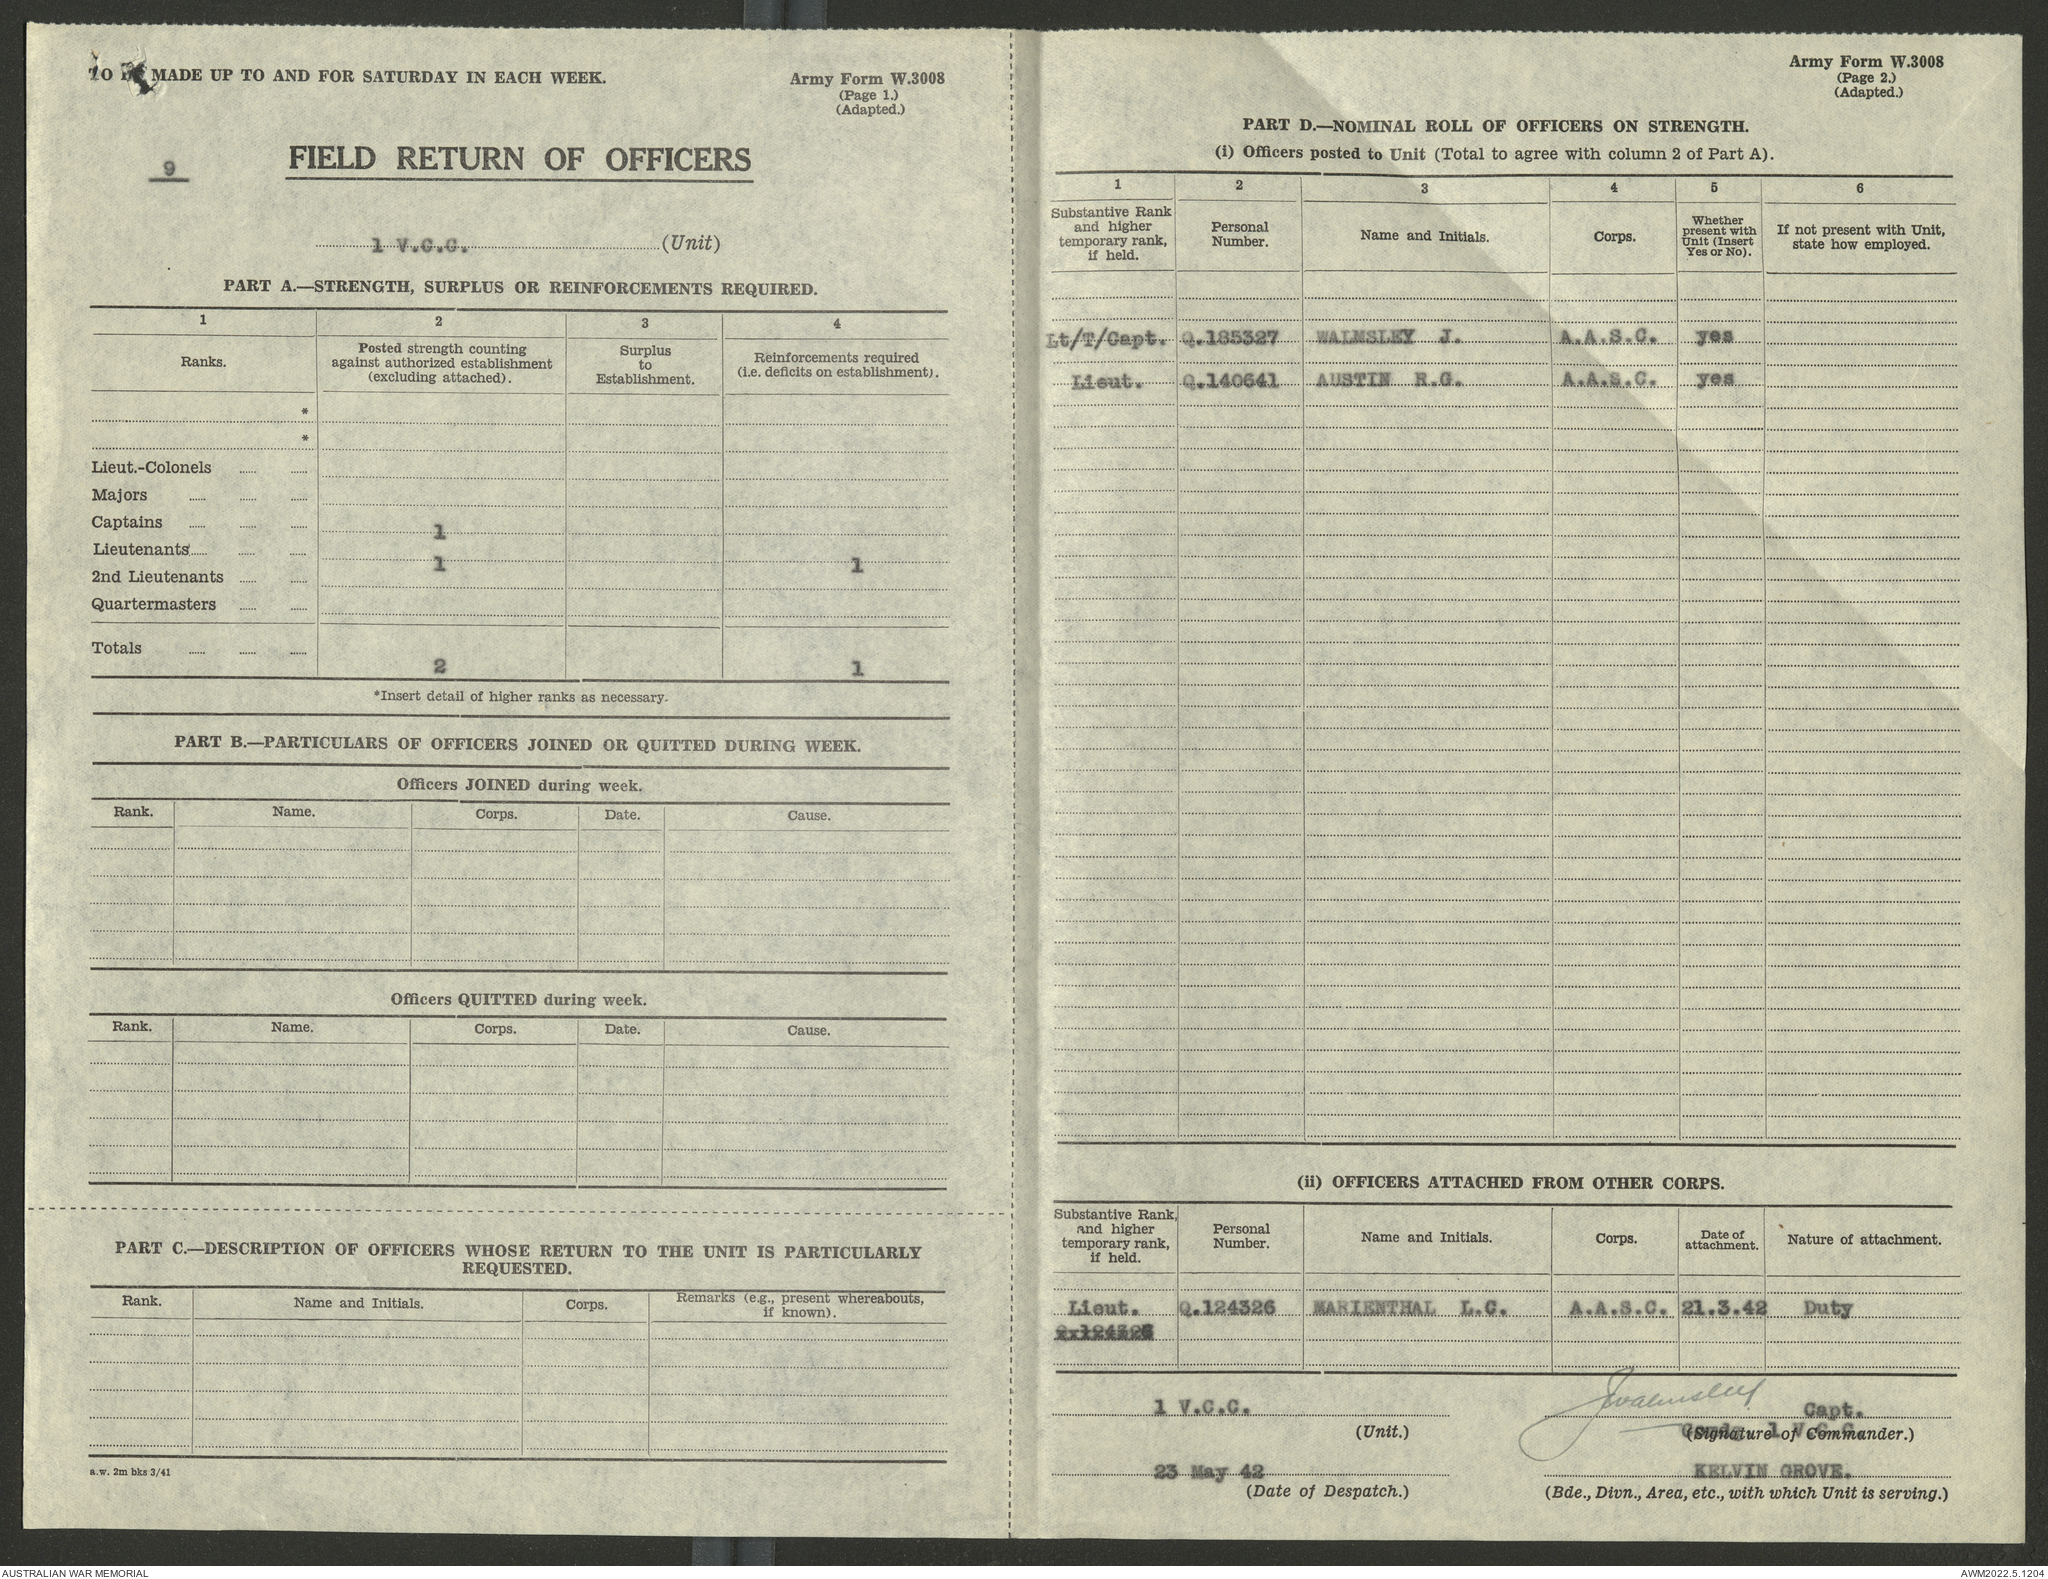 TO BE MADE UP TO AND FOR SATURDAY IN EACH WEEK.
Army Form W.3008
(Page 1.)
(Adapted.)
9
FIELD RETURN OF OFFICERS
1 V.C.C. (Unit)
PART A.—STRENGTH, SURPLUS OR REINFORCEMENTS REQUIRED.
1 2 3 4
Ranks. Posted strength counting against authorized establishment (excluding attached). Surplus to Establishment. Reinforcements required (i.e. deficits on establishment).
*
*
Lieut.-Colonels
Majors
Captains 1
Lieutenants 1 1
2nd Lieutenants
Quartermasters
Totals 2 1
*Insert detail of higher ranks as necessary.
PART B.—PARTICULARS OF OFFICERS JOINED OR QUITTED DURING WEEK.
Officers JOINED during week.
Rank. Name. Corps. Date. Cause.
Officers QUITTED during week.
Rank. Name. Corps. Date. Cause.
PART C.—DESCRIPTION OF OFFICERS WHOSE RETURN TO THE UNIT IS PARTICULARLY
REQUESTED.
Rank. Name and Initials. Corps. Remarks (e.g., present whereabouts, if known).
a.w. 2m bks 3/41
Army Form W.3008
(Page 2.)
(Adapted.)
PART D.—NOMINAL ROLL OF OFFICERS ON STRENGTH.
(i) Officers posted to Unit (Total to agree with column 2 of Part A).
1 2 3 4 5 6
Substantive Rank and higher temporary rank, if held. Personal Number. Name and Initials. Corps. Whether present with Unit (Insert Yes or No). If not present with Unit, state how employed.
Lt/T/Capt. Q.185327 WALMSLEY J. A.A.S.C. yes
Lieut. Q.140641 AUSTIN R.G. A.A.S.C. yes
(ii) OFFICERS ATTACHED FROM OTHER CORPS.
Substantive Rank, and higher temporary rank, if held. Personal Number. Name and Initials. Corps. Date of attachment. Nature of attachment.
Lieut. Q.124326 MARIENTHAL L.C. A.A.S.C. 21.3.42 Duty
1 V.C.C.
(Unit.)
JWalmsley Capt.
Comdg 1 V.C.C.
(Signature of Commander.)
23 May 42
(Date of Despatch.)
KELVIN GROVE.
(Bde., Divn., Area, etc., with which Unit is serving.)
AUSTRALIAN WAR MEMORIAL
AWM2022.5.1204